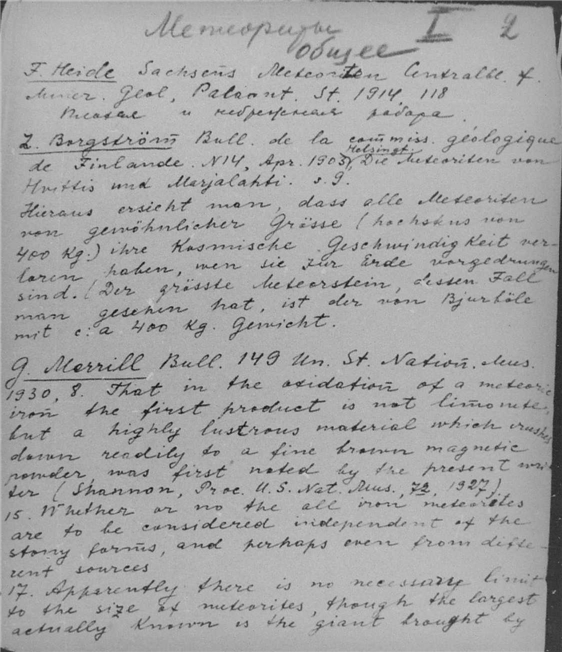 Метеориты I 2
общее
F. Heide Sachsens Meteoriten Centralbl. f.
Miner. Geol, Paläont. St. 1914, 118
и небрежная работа.
L. Borgström Bull. de la commiss. géologique
de Finlande. N14, Apr. 1903, Helsingf. Die Meteoriten von
Hvittis und Marjalahti. s. 9.
Hieraus ersicht man, dass alle Meteoriten
von gewöhnlicher Grösse (hochstens von
400 kg.) ihre Kosmische Geschwindigkeit ver-
loren haben, wen sie zur Erde vorgedrungen
sind. (Der grösste Meteorstein, dessen Fall
man gesehen hat, ist der von Bjurböle
mit c:a 400 kg. Gewicht.
G. Merrill Bull. 149 Un. St. Nation. Mus.
1930, 8. That in the oxidation of a meteoric
iron the first product is not limonite,
but a highly lustrous material which crushes
down readily to a fine brown magnetic
powder was first noted by the present wri-
ter (Shannon, Proc. U.S. Nat. Mus., 72, 1927)
15. Whether or no the all iron meteorites
are to be considered independent of the
stony forms, and perhaps even from diffe-
rent sources
17. Apparently there is no necessary limit
to the size of meteorites, though the largest
actually known is the giant brought by